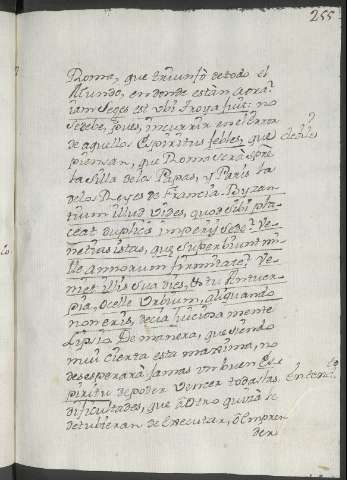 255
Roma, que triunfò de todo el
Mundo, en donde estàn aora?
iam Seges est vbi Troya fuit: no
se debe, pues, incurrir en el error
de aquellos Espiritus febles, que debiles
piensan, que Roma serà sprê
la Silla de los Papas, y Paris la
de los Reyes de Francia. Byzan-
tium illud vides, quod sibi pla-
cet duplicis imperij sede? Ve-
netias istas, quæ superbiunt mi-
lle annorum firmitate? Ve-
niet illis sua dies, & tu Antuer-
pia, Ocelle Vrbium, aliquando
non eris, decia juiciosamente
Lipsio. De manera, que siendo
mui cierta esta maxima, no
desesperarà jamas vn buen Es-
piritu de poder vencer todas las
dificultades, que à Otro quizà le
detubieran de executar, ò Empren-
der